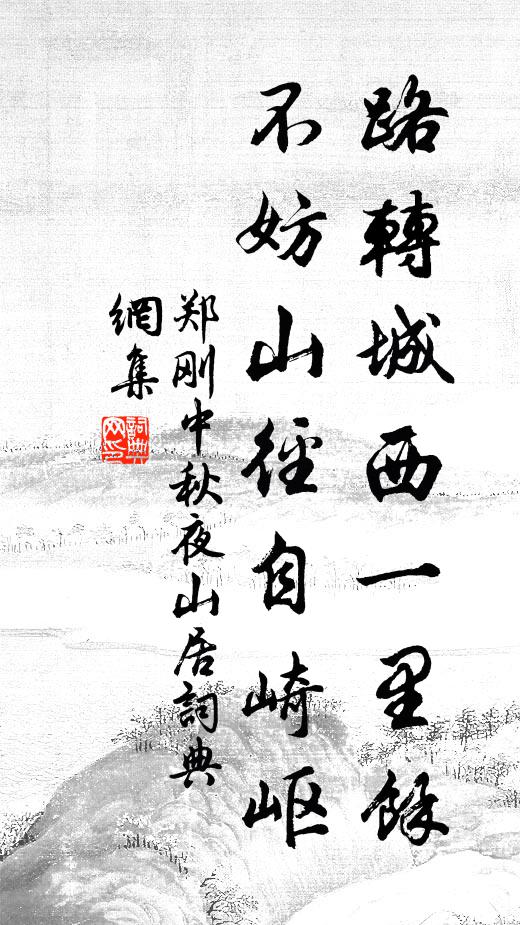 路轉城西一里餘
不妨山徑自崎岖
郑刚中秋夜山居詞典
網集
詞典